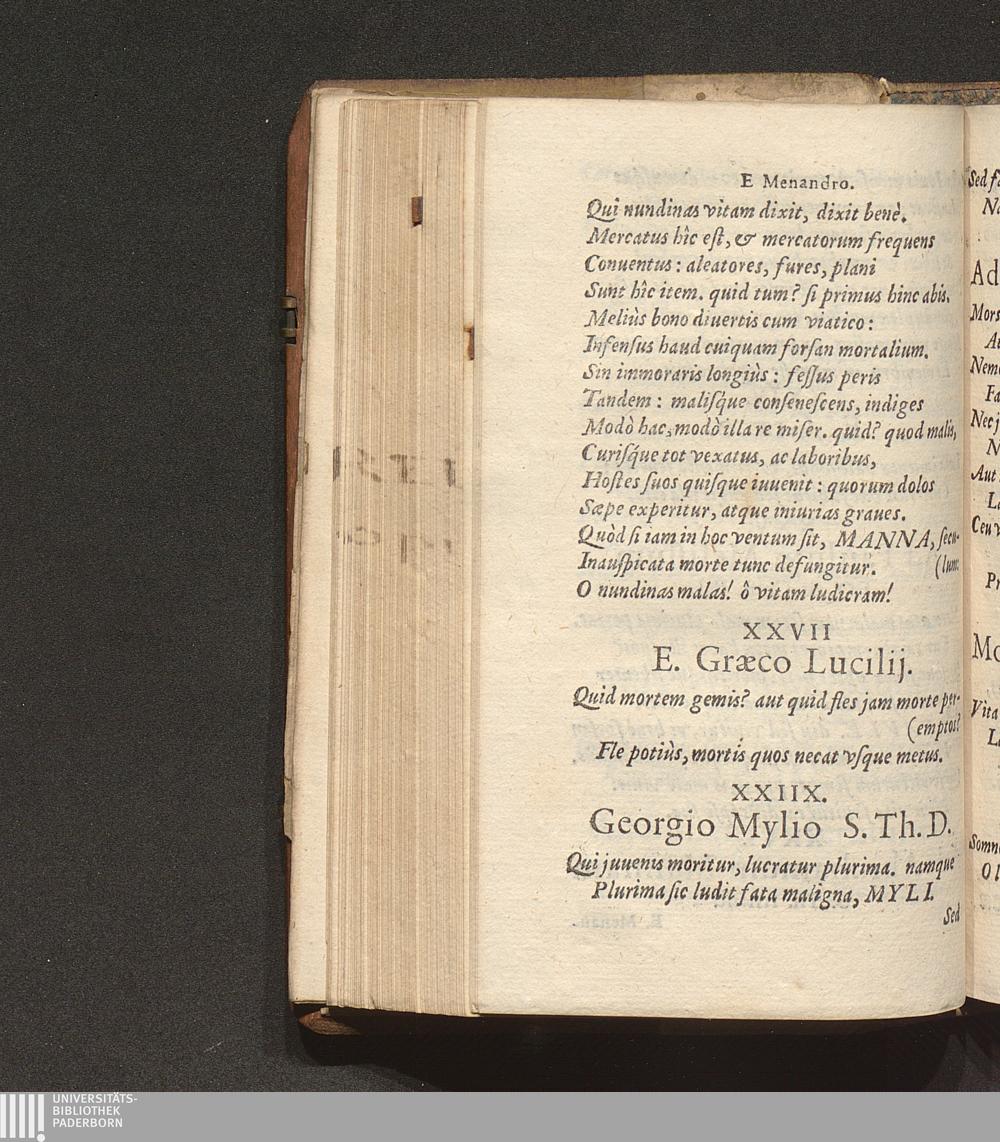 E Menandro.
Qui nundinas vitam dixit, dixit benè.
Mercatus hîc eſt, & mercatorum frequens
Conuentus: aleatores, fures, plani
Sunt hîc item. quid tum? ſi primus hinc abis,
Meliùs bono diuertis cum viatico:
Infenſus haud cuiquam forſan mortalium.
Sin immoraris longiùs: feſſus peris
Tandem: maliſq́ue conſeneſcens, indiges
Modò hac, modò illa re miſer. quid? quod malis,
Curiſq́ue tot vexatus, ac laboribus,
Hoſtes ſuos quiſque iuuenit: quorum dolos
Sæpe experitur, atque iniurias graues.
Quòd ſi iam in hoc ventum ſit, MANNA, ſecu-
Inauſpicata morte tunc defungitur. (lum:
O nundinas malas! ô vitam ludicram!
XXVII
E. Græco Lucilij.
Quid mortem gemis? aut quid fles jam morte per-
(emptos?
Fle potiùs, mortis quos necat vſque metus.
XXIIX.
Georgio Mylio S. Th. D.
Qui juuenis moritur, lucratur plurima. namque
Plurima ſic ludit fata maligna, MYLI.
Sed
Sed
Ad
Mors
Nem
Aut
Ceu
Pr
Vita
Somn
UNIVERSITÄTS-
BIBLIOTHEK
PADERBORN